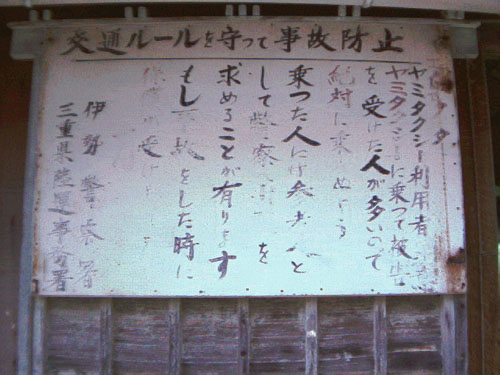 交通ルールを守って事故防止
ヤミタクシー利用者
ヤミタクシーに乗つて被害
を受けた人が多いので
絶対に乗
乗つた人には参考人と
して警察 を
求めることが有ります
もし事故をした時に
保 受け
伊勢警察署
三重県陸運事務署